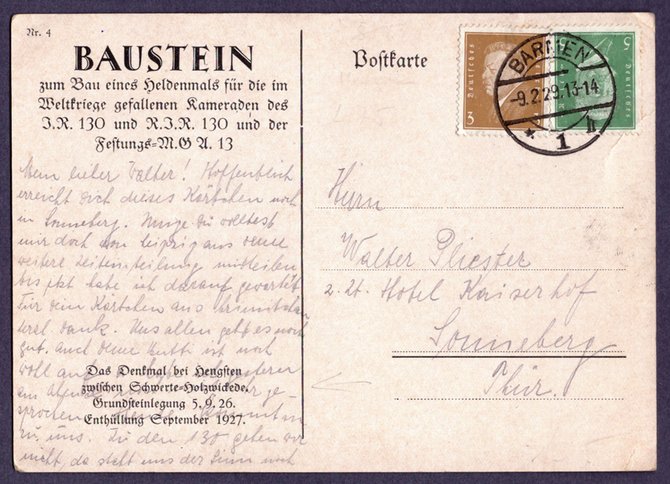 Nr. 4
BAUSTEIN
zum Bau eines Heldenmals für die im
Weltkriege gefallenen Kameraden des
I.R. 130 und R.I.R. 130 und der
Festungs-M.G A. 13
Postkarte
Deutsches
3
5
Deutsches
BARMEN
-9.2.29.13-14
* 1 n
Mein lieber Walter! Hoffentlich
erreicht dich dieses Kärtchen noch
in Sonneberg. Du wolltest
mir doch von Leipzig aus
weitere mitteilen
bis jetzt habe ich darauf gewartet
Für dein Kärtchen aus
Dank. Uns allen geht es noch
gut. auch deine Mutti ist noch
wohl
am
sprochen
zu uns. Zu den 130 gehen wir
nicht, da steht uns der Sinn
Das Denkmal bei Hengsten
zwischen Schwerte-Holzwickede.
Grundsteinlegung 5. 9. 26.
Enthüllung September 1927.
Herrn
Walter Pliester
z. Zt. Hotel Kaiserhof
Sonneberg
Thür.